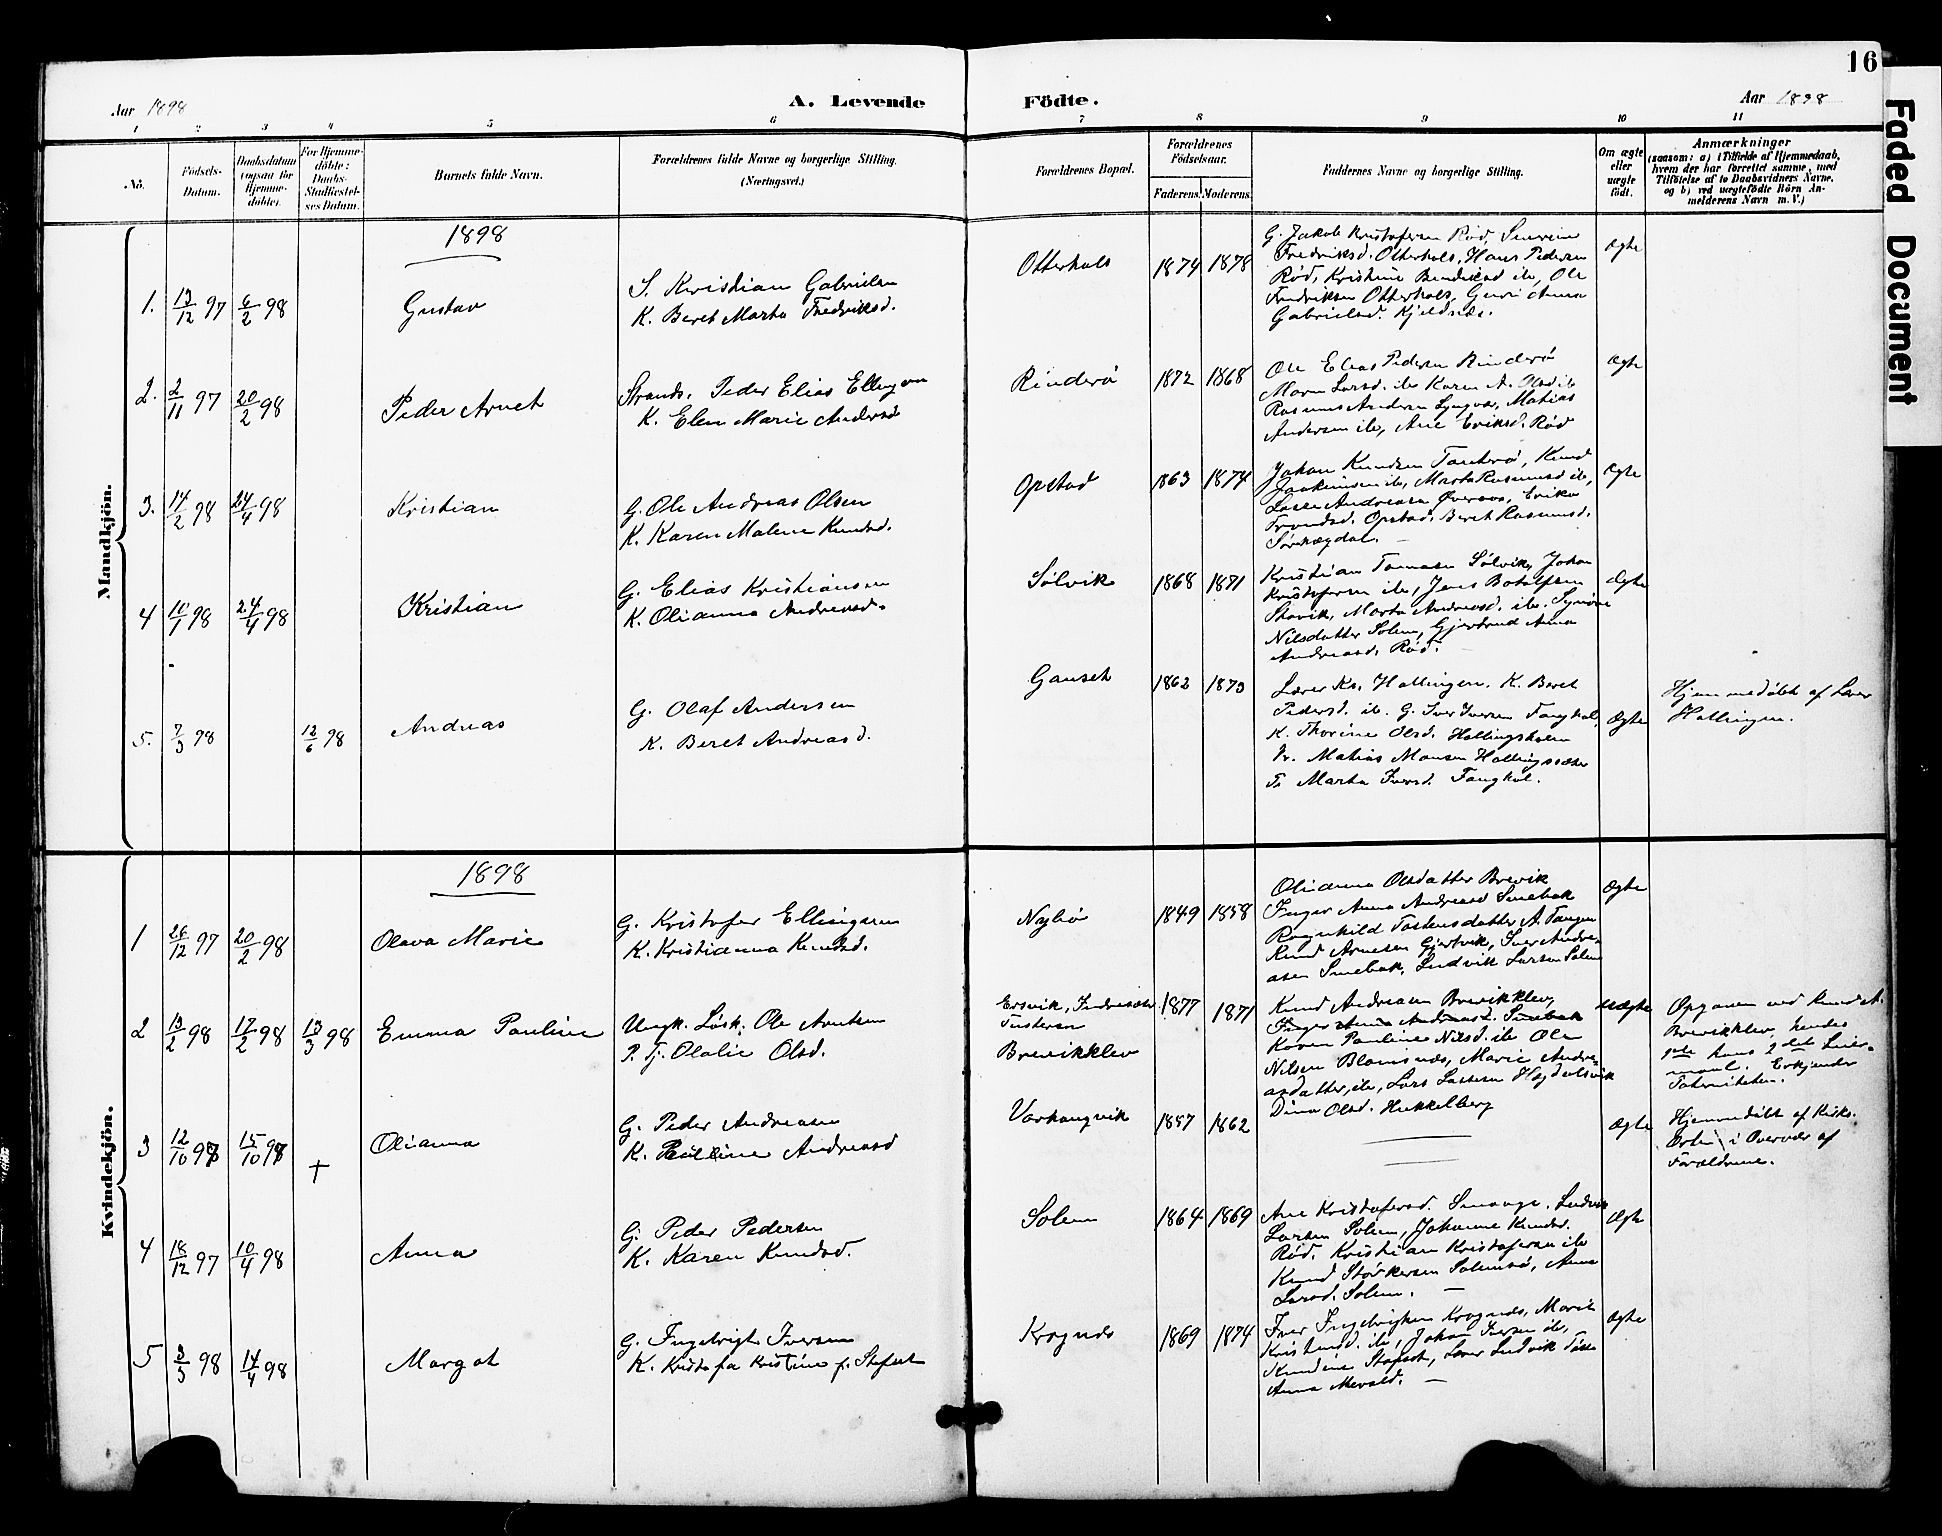 16
Faded Document
Aar 1898
A. Levende
Födte.
Aar 1898
1 2 3 4 5 6 7 8 9 10 11
No.
Födsels-Datum.
Daabsdatum (ogsaa för Hjemme-döbte).
For Hjemme-döbte: Daabs-Stadfæstel-ses Datum.
Barnets fulde Navn.
Forældrenes fulde Navne og borgerlige Stilling.
(Næringsvei.)
Forældrenes Bopæl.
Forældrenes Födselsaar.
Faderens. Moderens.
Faddernes Navne og borgerlige Stilling.
Om ægte eller uægte födt.
Anmærkninger
(saasom: a) i Tilfælde af Hjemmedaab,
hvem der har forrettet samme, med
Tilföielse af to Daabsvidners Navne,
og b) ved uægtefödte Börn An-
melderens Navn m. V.)
Mandkjön.
1898
1. 13/12 97 6/2 98 Gustav
S. Kristian Gabrielsen
K. Beret Marta Fredriksd.
Otterhals 1874 1878
G. Jakob Kristofersen Rød, Severine
Fredriksd. Otterhals, Hans Pedersen
Rød, Kristine Bendiksd ib, Ole
Fredriksen Otterhals, Guri Anna
Gabrielsd. Kjeldnæs.
Ægte
2. 2/11 97 20/2 98 Peder Arnet
Strands. Peder Elias Ellingsen
K. Elen Marie Andersd
Rinderø 1872 1868
Ole Elias Pedersen Rinderø
Maren Larsd. ib Karen A. Olsd ib
Rasmus Andersen Lyngvær, Matias
Andersen ib, Ane Eriksd. Rød
Ægte
3. 14/2 98 24/4 98 Kristian
G. Ole Andreas Olsen
K. Karen Malene Knutsd.
Opstad 1863 1874
Johan Knudsen Tanderø, Knud
Joakimsen ib, Marta Rasmusd ib,
Lasse Andreasen Øveraas, Erika
Trondsd. Opstad, Beret Rasmusd.
Sørhægdal.
Ægte
4 10/1 98 24/4 98 Kristian
G. Elias Kristiansen
K. Olianna Andreasd.
Sølvik 1868 1871
Kristian Tomasen Sølvik, Johan
Kristofersen ib, Jens Botolfsen
Skovik, Marta Andreasd. ib. Synøve
Nilsdatter Solem, Gjertrud Anna
Andreasd. Rød.
Ægte
5. 7/3 98 12/6 98 Andreas
G. Olaf Andersen
K. Beret Andreasd.
Gauset 1862 1873
Lærer Kr. Hallingen. K. Beret
Pedersd. ib. G. Iver Iversen Tangkal
K. Thorine Olsd. Hallingsholm
U. Matias Monsen Hallingsæter
P. Marta Iversd. Tangkal.
Ægte
Hjemmedøbt af Lærer
Hallingen.
Kvindekjön.
1898
1 26/12 97 20/2 98 Olava Marie
G. Kristofer Ellingsen
K. Kristianna Knutsd.
Nybø 1849 1858
Olianna Olsdatter Brevik
Inger Anna Andreasd Smebak
Ragnhild Tostensdatter A. Tangen
Knud Arnesen Gjertvik, Iver Andre-
asen Smebak, Ludvik Larsen Solem
Ægte
2 13/2 98 17/2 98 13/3 98 Emma Pauline
Ungk. Løsk. Ole Arntsen
P. Tj. Olalie Olsd.
Ersvik, Indresæter
Tusteren
Brevikklev
1877 1871
Knud Andreasen Brevikklev,
Inger Anna Andreasd. Smebak
Karen Pauline Nilsd. ib Ole
Nilsen Blomsnæs, Marie Andre-
asdatter, ib, Lars Larsen Hægdalsvik
Dina Olsd. Hukkelberg
uægte
Opgaven ved Knud A.
Brevikklev, hendes
1ste hans 2det Leier-
maal. Erkjender
Paterniteten.
3 12/10 97 15/10 97 † Olianna
G. Peder Andreasen
K. Pauline Andreasd
Vorhaugvik 1857 1862
Ægte
Hjemmedøbt af Kirks.
i Overvær af
Forældrene.
4 18/12 97 10/4 98 Anna
G. Peder Pedersen
K. Karen Knudsd.
Solem 1864 1869
Ane Kristofersd. Smaage. Ludvik
Larsen Solem, Johanne Knutsd.
Rød. Kristian Kristofersen ib
Knud Størkersen Solemsø, Anna
Larsd. Solem.
Ægte
5 3/3 98 14/4 98 Margot
G. Ingebrigt Iversen
K. Kristofa Kristine f. Stafset
Krognæs 1869 1874
Iver Ingebrigtsen Krognæs, Marit
Kristensd. ib, Johan Iversen ib,
Knudine Stafset, Lærer Ludvik Tøsse
Anna Mevold.
Ægte